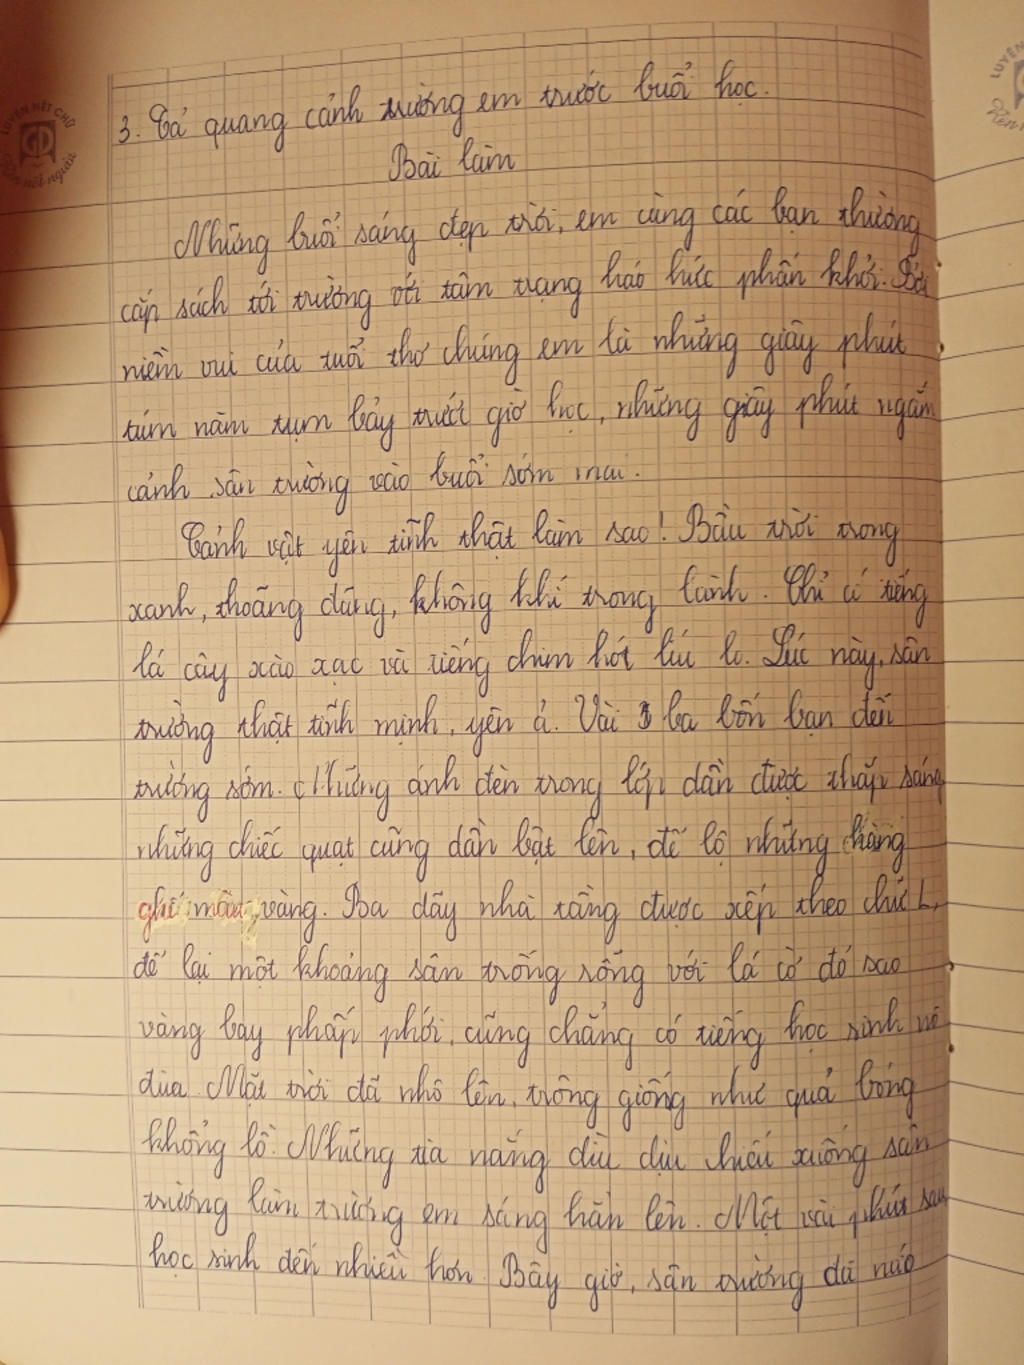 3. Tả quang cảnh trường em trước buổi học.
Bài làm
Những buổi sáng đẹp trời, em cùng các bạn thường
cắp sách tới trường với tâm trạng háo hức phấn khởi. Bởi
niềm vui của tuổi thơ chúng em là những giây phút
túm năm tụm bảy trước giờ học, những giây phút ngắm
cảnh sân trường vào buổi sớm mai.
Cảnh vật yên tĩnh thật làm sao! Bầu trời trong
xanh, thoãng đãng, không khí trong lành. Chỉ có tiếng
lá cây xào xạc và tiếng chim hót líu lo. Lúc này, sân
trường thật tĩnh mịnh, yên ả. Vài ba bốn bạn đến
trường sớm. Những ánh đèn trong lớp dần được thắp sáng
những chiếc quạt cũng dần bật lên, để lộ những hàng
ghế màu vàng. Ba dãy nhà tầng được xếp theo chữ L,
để lại một khoảng sân trống rỗng với lá cờ đỏ sao
vàng bay phấp phới, cũng chẳng có tiếng học sinh nô
đùa. Mặt trời đã nhô lên, trông giống như quả bóng
khổng lồ. Những tia nắng dìu dịu chiếu xuống sân
trường làm trường em sáng hẳn lên. Một vài phút sau
học sinh đến nhiều hơn. Bây giờ, sân trường đã náo
LUYỆN NÉT CHỮ
Rèn nết người
LUYỆN
Rèn